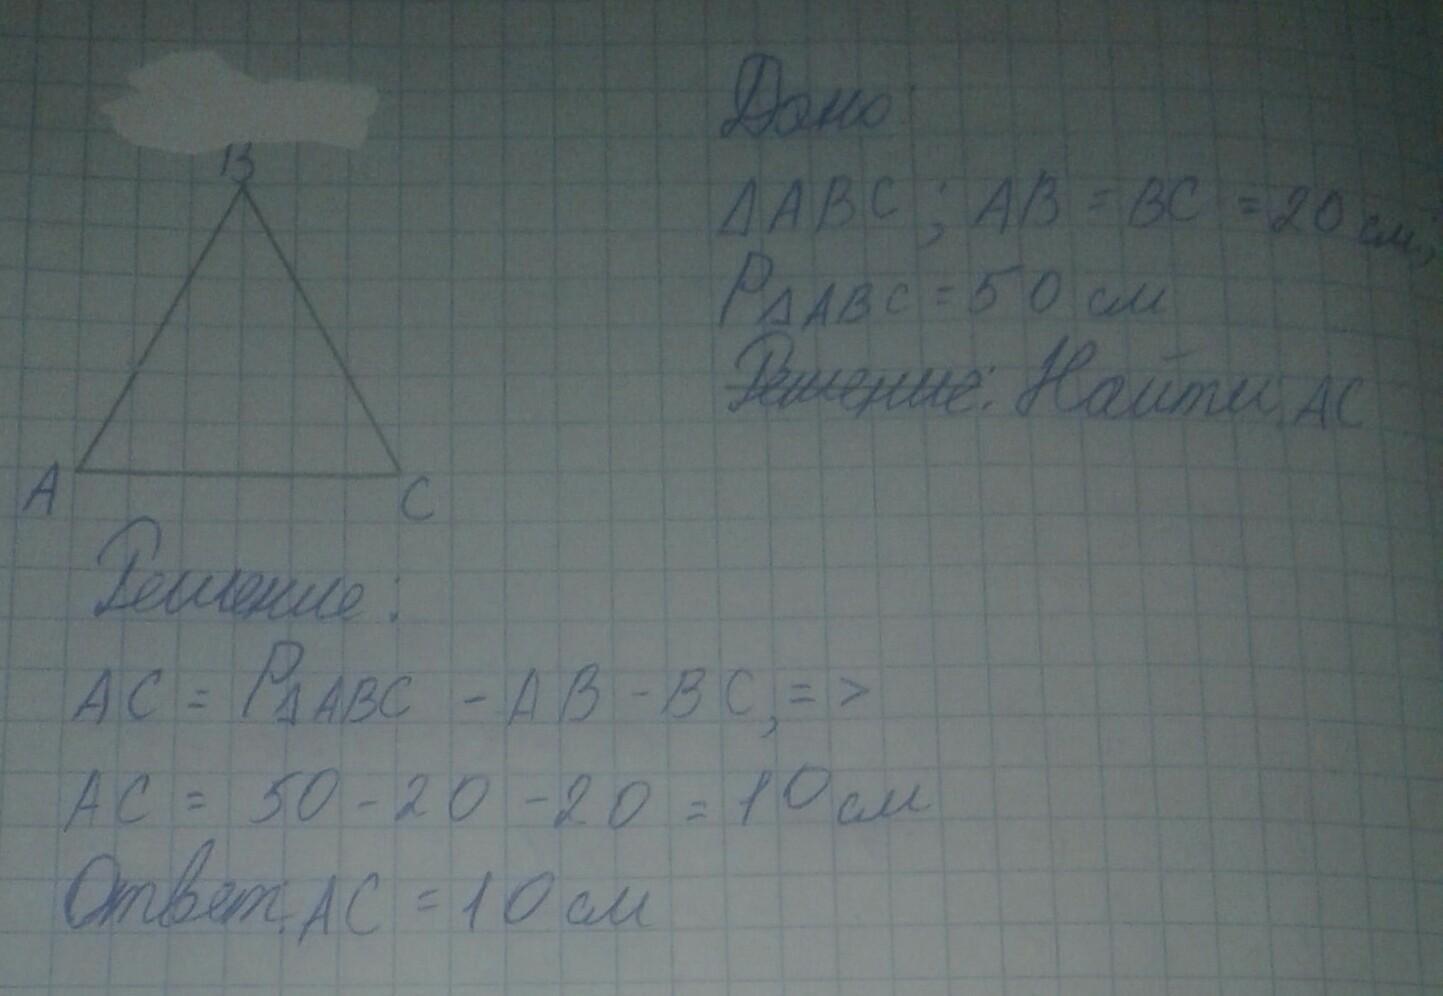 B
A
C
Дано:
ΔABC; AB = BC = 20 см,
PΔABC = 50 см
Решение: Найти AC
Решение:
AC = PΔABC - AB - BC, =>
AC = 50 - 20 - 20 = 10 см
Ответ: AC = 10 см